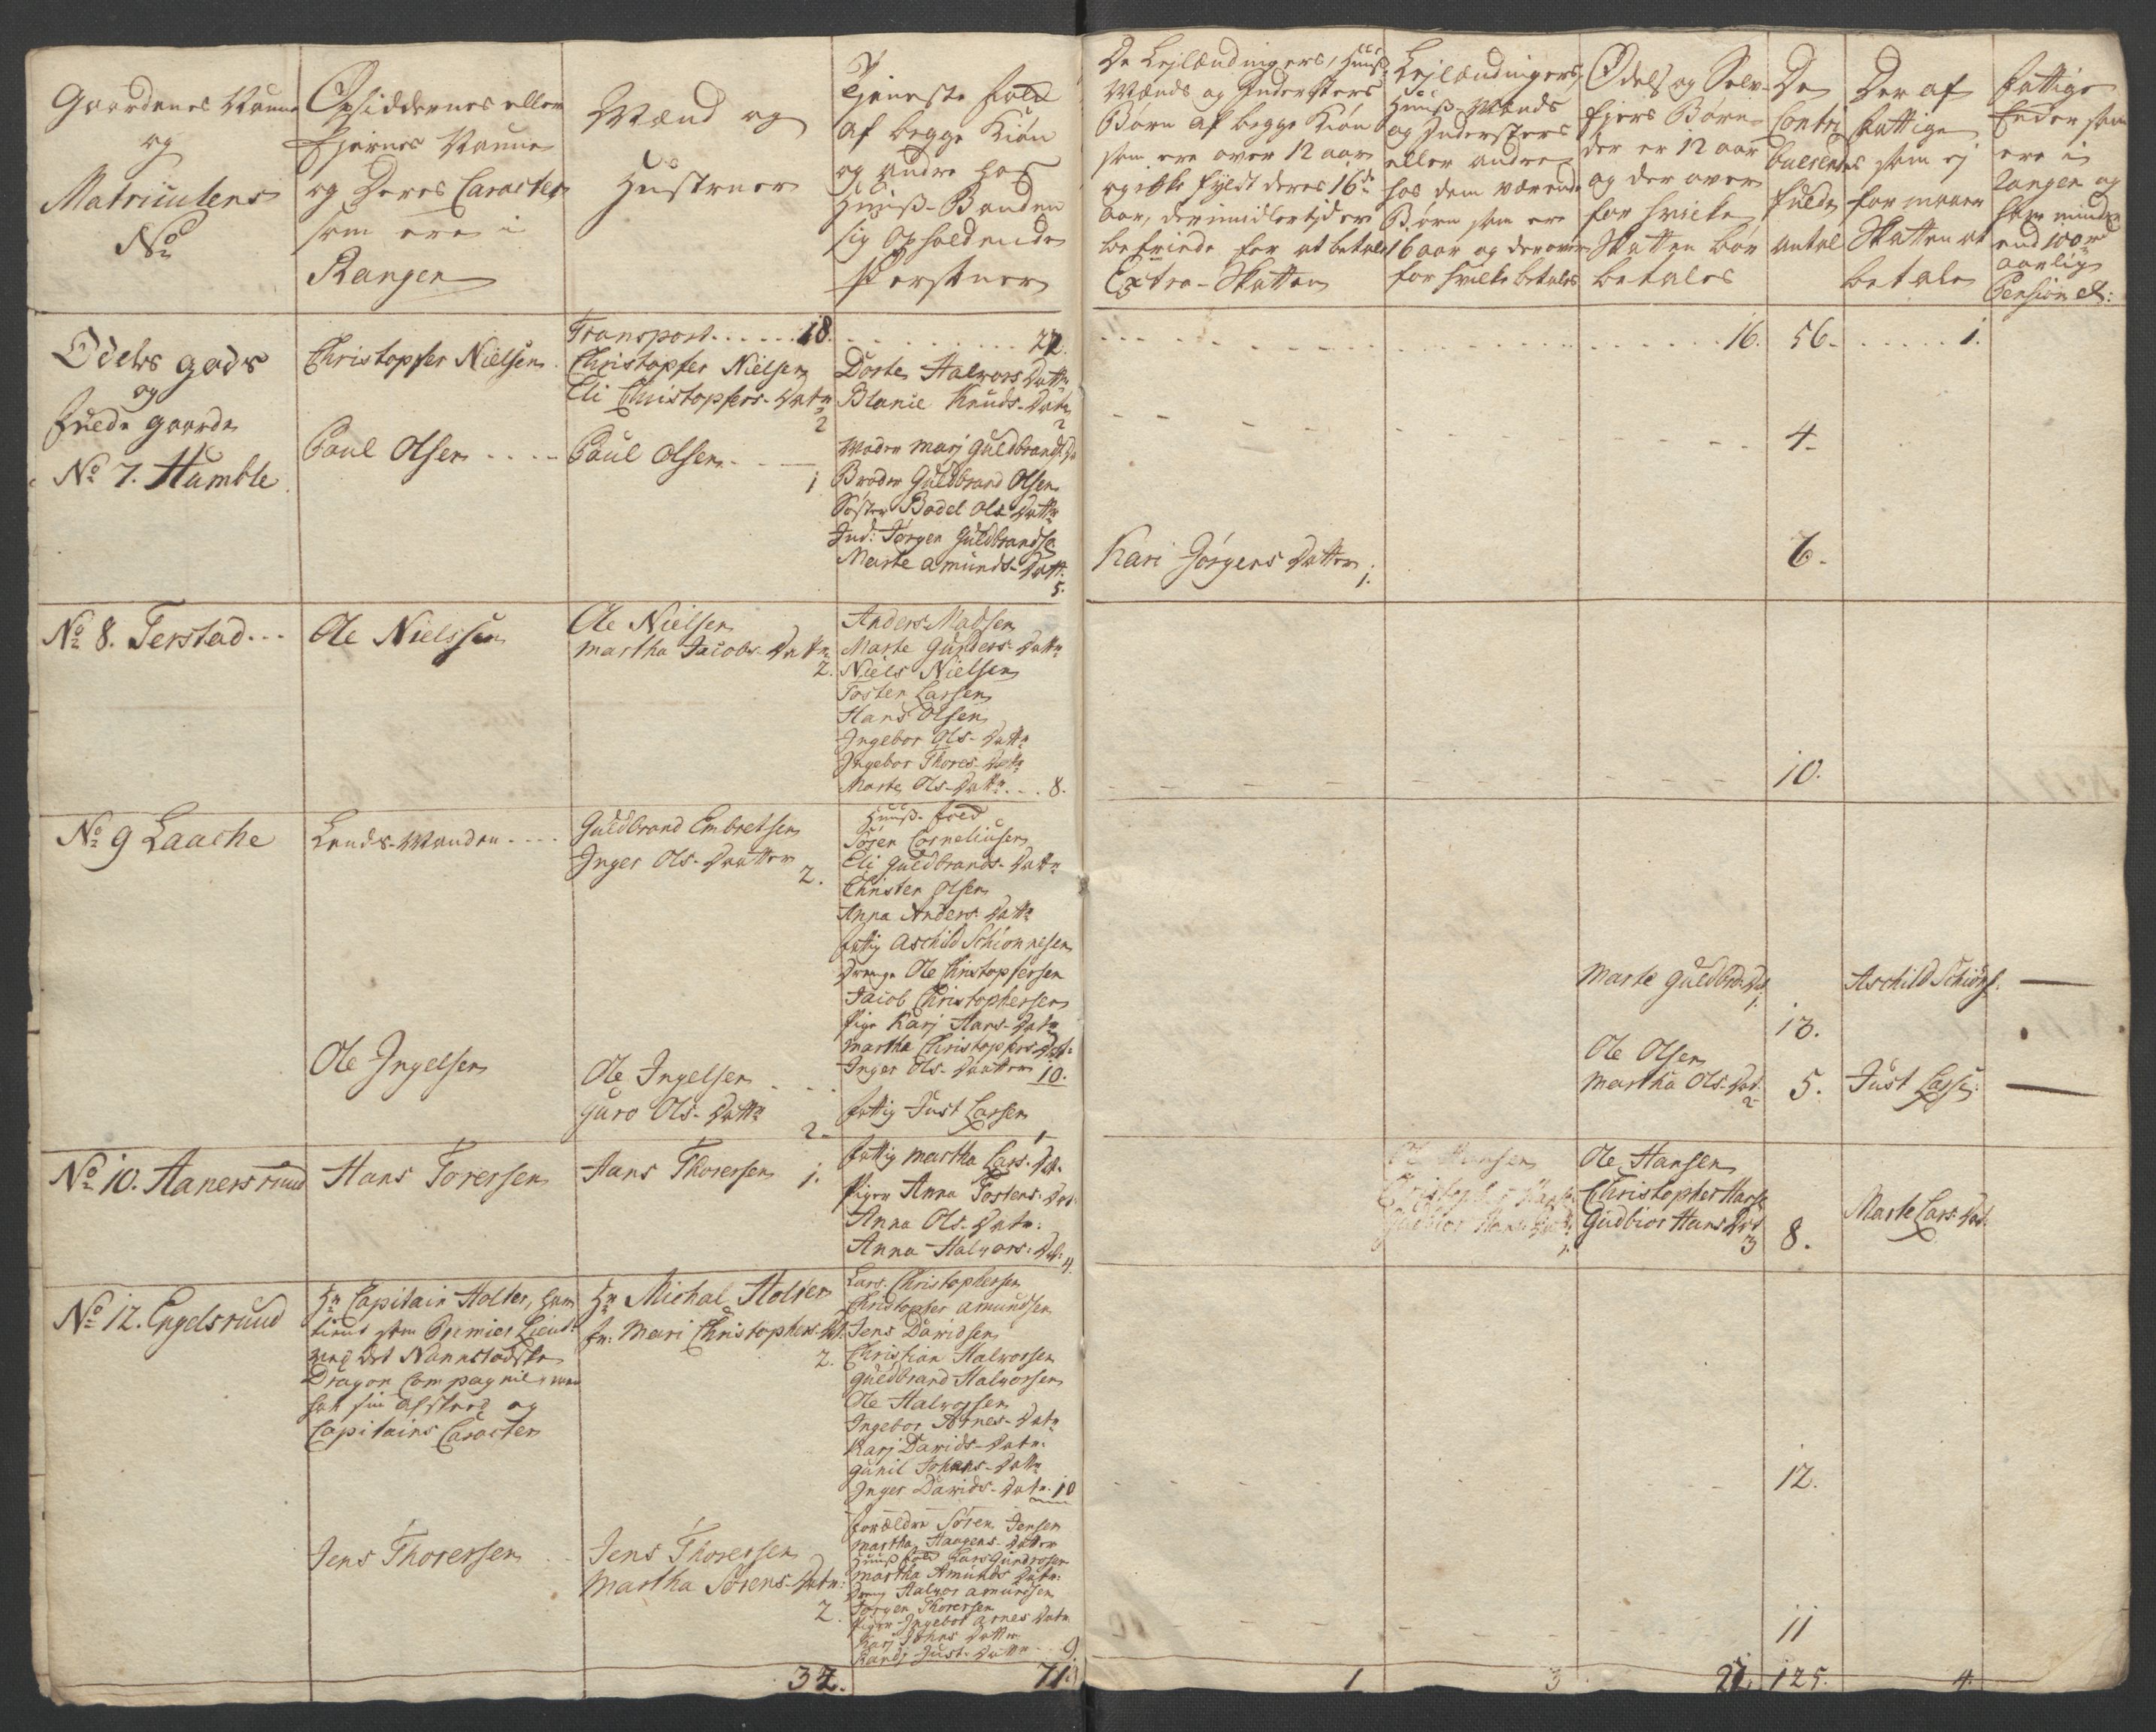 Gaardenes Naune
og
Matriculens
No
Opsiddernes eller
Ejernes Naune
og Deres Caracter
som ere i
Rangen
Mænd og
Hustruer
Tjeneste folk
af begge Kiøn
og andre hos
Huus-Bonden
sig opholdende
Persohner
De Lejlændingers, Huus-
Mænds og Inderster s
Børn af begge Kiøn
som ere over 12 aar
og ikke fyldt deres 16de
aar, der imidlertid er
befriede for at betale
Extra-Skatten
Lejlændingers,
Huus-Mænds
og Indersters
eller andre
hos dem værende
Børn som ere
16 aar og derover
for hvilke betales
Odels og Selv-
Ejers Børn
der er 12 aar
og der over
for hvilke
Skatten bør
betales
De
Contri
buerendes
fulde
antal
Der af
fattige
som ej
formaaer
Skatten at
betale
fattige
Enker som
ere i
Rangen og
have mindre
end 100 rd
aarlig
Pension etc:
Transport . . . . . . 18. . . . . . . . . . 22. . . . . . . . . . 16. 56 - . . . . . 1.
Odels gods
og
fulde gaarde
No 7. Humble
Christopfer Nielsen .
Christopfer Nielsen
Eli Christopfers-Datr
2
Dorte Halvors Dattr
Blanie Knuds-Datr
2
4-
Paul Olsen . . . .
Paul Olsen . - —
1
Moder Marj Guldbrands Dr
Broder Guldbrand Olsen
Søster Bodel Ols Dattr
Ind: Jørgen Guldbrandse
Marte Amunds-Datt:
5.
Kari Jørgens Datter
1.
6-
No 8. Terstad . . .
Ole Nielssen
Ole Nielsen
Martha Jacobs-Dattr
2.
Anders Madsen
Marte Gunders-Dattr
Niels Nielsen
Tosten Larsen
Hans Olsen
Ingebor Ols-Dattr
Ingebor Thores-Dattr
Marte Ols-Dattr . . . 8.
10.
No 9 Laache
Lends-Manden . . . .
Guldbrand Embretsen
Inger Ols-Daatter
2.
Huus-folk
Søren Corneliusen
Eli Guldbrands-Dattr
Christen Olsen
Anna Anders-Dattr
fattig Aschild Schionnesen
Drenge Ole Christopfersen
Jacob Christophersen
Pige Karj Hans-Datr
Martha Christopfers Dat:
Inger Ols-Daatter 10.
Marte Guldbr: Dat
1.
13.
Aschild Schions: —
Ole Ingelsen
Ole Ingelsen . . .
Guro Ols-Dattr
2-
fattig Just Larsen
1
Ole Olsen
Martha Ols-Dat.
2
5.
Just Larse: —
No 10. Hanersruud
Hans Torersen
Hans Thorersen 1.
fattig Martha Lars-Dat.
Piger Anna Tostens-Dat:
Anna Ols-Datr:
Anna Halvors: Dat:
4.
Ole Hansen
Christopher Hanse
Gudbior Hans Dat:
Ole Hansen
Christopher Hanse
Gudbior Hans Dat
3
8.
Marte Lars Dat:
No 12. Engelsruud
Hr Capitain Holter, har
tient som Premier Lieut:
ved det Nannestadske
Dragon Compagnie, men
har sin afskeed og
Capitains Caracter
Hr Michal Holter
fr: Mari Christophers Dat:
2.
Lars Christophersen
Christopher Amundsen
Jens Davidsen
Christian Halvorsen
Guldbrand Halvorsen
Ole Halvorsen
Ingebor Arnes-Datr
Karj Davids-Datr:
Gunil Johans-Dattr
Inger Davids-Datr. 10
12.
Jens Thorersen . .
Jens Thorersen
Martha Sørens-Datr:
2.
forældre Søren Jensen
Martha Haagens-Datter
Huus folk Lars Gundrosen
Martha Amunds Datr:
Dreng Halvor Amundsen
Jørgen Thorersen
Piger Ingebor Arnes Datr
Karj Johns Dattr
Randj Just-Dattr . . . 9.
11
34. 71. 1 3 21 125. 4.